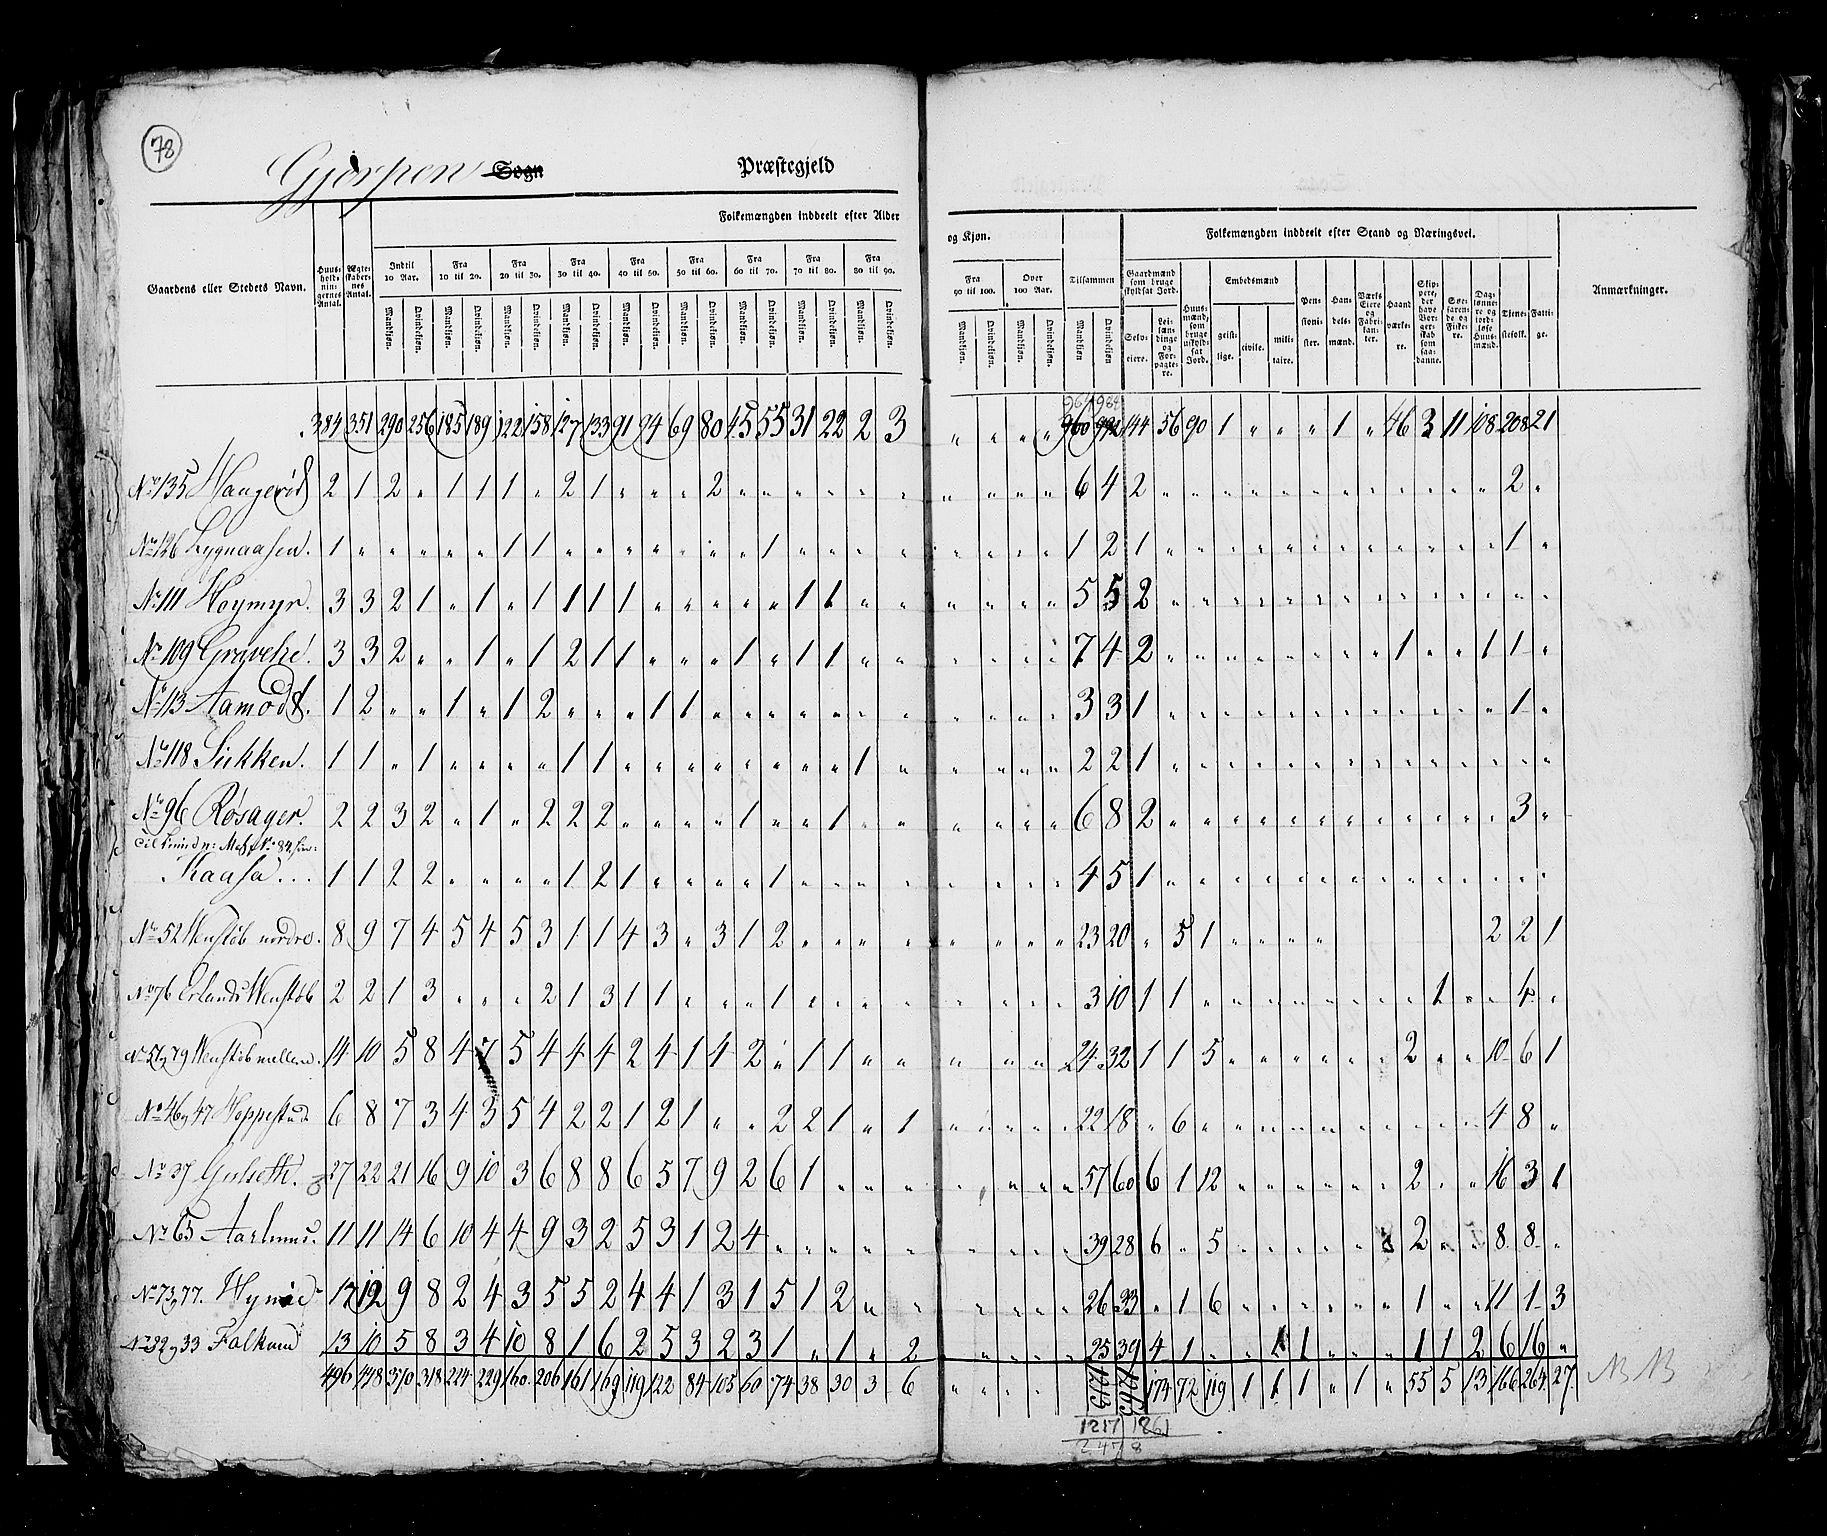 78
Gjerpen Sogn Præstegjeld
Folkemængden inddeelt efter Alder og Kjøn.
Folkemængden inddeelt efter Stand og Næringsvei.
Gaardens eller Stedets Navn.
Huus-holdnin-gernes Antal.
Ægte-skaber-nes Antal.
Indtil 10 Aar.
Fra 10 til 20.
Fra 20 til 30.
Fra 30 til 40.
Fra 40 til 50.
Fra 50 til 60.
Fra 60 til 70.
Fra 70 til 80.
Fra 80 til 90.
Fra 90 til 100.
Over 100 Aar.
Tilsammen
Mandkjøn. Qvindekjøn.
Gaardmænd som bruge skyldsat Jord.
Selv-eiere.
Lei-læn-dinge og For-pagte-re.
Huus-mænd, som bruge uskyld-sat Jord.
Embedsmænd
geist-lige. civile. mili-taire.
Pen-sioni-ster.
Han-dels-mænd.
Værks Eiere og Fabri-kan-ter.
Haand-værke-re.
Skip-pere, der have Bor-ger-skab som saa-danne.
Søe-faren-de og Fiske-re.
Dag-lønne-re og jord-løse Huus-mænd.
Tjene-stefolk.
Fatti-ge.
Anmærkninger.
964 984
384 351 290 256 185 189 122 158 127 133 91 94 69 80 45 55 31 22 2 3 " " " " 960 992 144 56 90 1 " " " 1 " 46 3 11 108 208 21
No 135 Haugerød 2 1 2 " 1 1 1 " 2 1 " " " 2 " " " " " " " " " " 6 4 2 " " " " " " " " " " " " 2 "
No 126 Lygnaasen. 1 " " " " " 1 1 " " " " " " " 1 " " " " " " " " 1 2 1 " " " " " " " " " " " " 1 "
No 111 Høymyr. 3 3 2 1 " 1 " 1 1 1 1 " " " " " 1 1 " " " " " " 5 5 2 " " " " " " " " " " " " " "
No 109 Gravelie. 3 3 2 " " 1 " 1 2 1 1 " " " 1 " 1 1 " " " " " " 7 4 2 " " " " " " " " 1 " " 1 1 "
No 113 Aamodt. 1 2 " " 1 " 1 2 " " " 1 1 " " " " " " " " " " " 3 3 1 " " " " " " " " " " " " 1 "
No 118 Siikken. 1 1 " 1 " " " " 1 1 " " " " " " " " 1 " " " " " 2 2 1 " " " " " " " " " " " " " "
No 96 Røsager. 2 2 3 2 " 1 " 2 2 2 " " " " 1 " " 1 " " " " " " 6 8 2 " " " " " " " " " " " " 3 "
Kaasa . . . 1 1 2 2 " " " " 1 2 1 " " " " 1 " " " " " " " " 4 5 1 " " " " " " " " " " " " " "
No 52 Wenstøb nordre. 8 9 7 4 5 4 5 3 1 1 4 3 " 3 1 2 " " " " " " " " 23 20 " 5 1 " " " " 2 2 1
No 76 Erlands Wenstøb 2 2 1 3 " " " 2 1 3 1 1 " " " 1 " " " " " " " " 3 10 1 1 " " " " " " " " 1 " " 4 "
No 51, 79 Wenstøb mellem. 14 10 5 8 4 7 5 4 4 4 2 4 1 4 2 " 1 1 " " " " " " 24 32 1 1 5 " " " " " " 2 " " 10 6 1
No 46, 47 Hoppestad 6 8 7 3 4 3 5 4 2 2 1 2 1 " " 2 2 1 " 1 " " " " 22 18 " 6 " " " " " " " " " " 4 8 "
No 37 Gulseth. 27 22 21 16 9 10 3 6 8 8 6 5 7 9 2 6 1 " " " " " " " 57 60 6 1 12 " " " " " " 2 " " 16 3 1
No 65 Aarhuus. 11 11 14 6 10 4 4 9 3 2 5 3 1 2 4 " " " " " " " " " 39 28 6 " 5 " " " " " 2 " " 8 8 "
No 73, 77. Hyni 17 12 9 8 2 4 3 5 5 2 4 4 1 3 1 5 1 2 " " " " " " 26 33 " 1 6 " " " " " " 1 " " 11 1 3
No 32, 33 Falkum 13 10 5 8 3 4 10 8 1 6 2 5 3 2 3 1 " 1 " 2 " " " " 25 39 4 1 " " " 1 1 " " " 1 1 2 6 16 "
496 448 370 318 224 229 160 206 161 169 119 122 84 105 60 74 38 30 3 6 " " " " 1213 1265 174 72 119 1 1 1 " 1 " 55 5 13 166 264 27.
1217 1261
2478